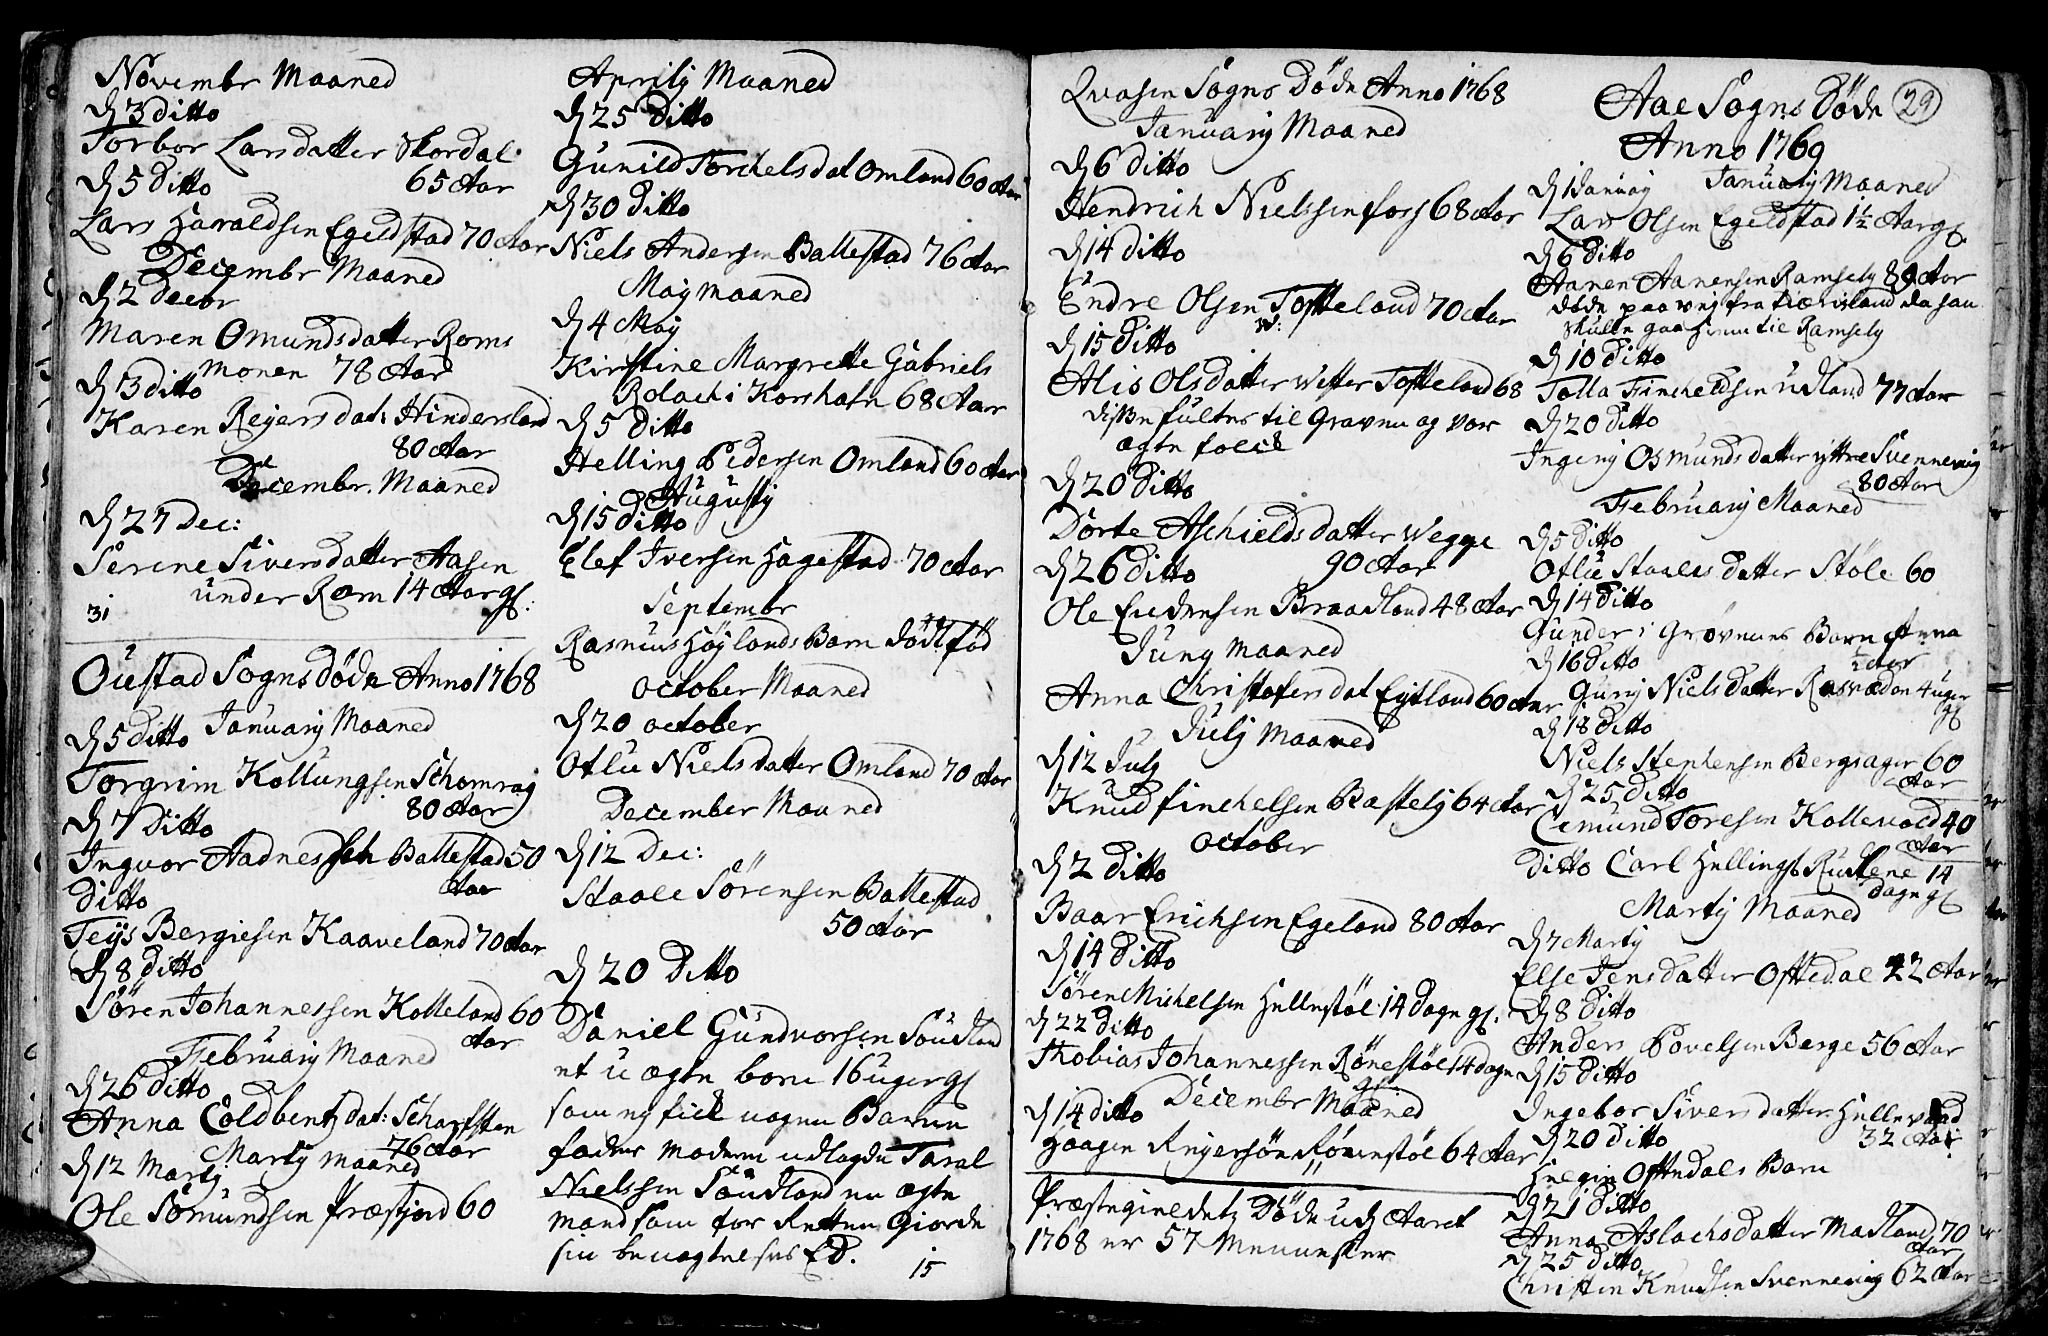 Novembr Maaned
D 3 ditto
Torbor Larsdatter Skordal
65 Aar
D 5 Ditto
Lars Haraldsen Egeldstad 70 Aar
Decembr Maaned
D 2 Decbr
Maren Omundsdatter Roms
monen 78 Aar
D 3 ditto
Karen Reyersdat: Hindersland
80 Aar
Decembr. Maaned
D 27 Dec:
Serene Siversdatter Aasen
under Rom 14 Aar gl:
31
Oustad Sogns Døde Anno 1768
Januarij Maaned
D 5 Ditto
Torgrim Kollungsen Schomrag
80 Aar
D 7 Ditto
Ingvor Aadnes Ballestad 50
Aar
Ditto
Teijs Bergiesen Kaaveland 70 Aar
D 8 ditto
Søren Johannessen Kolleland 60
Aar
Februarij Maaned
D 26 Ditto
Anna Coldbentsdat: Scharpsten
76 Aar
Martij maaned
D 12 Martij
Ole Somundsen Præstjord 60
Aprilij Maaned
D 25 Ditto
Gunild Torchelsdat Omland 60 Aar
D 30 Ditto
Niels Andersen Ballestad 76 Aar
Maij maaned
D 4 Maij
Kirstine Margrette Gabriels
Rolach i Korshaln 68 Aar
D 5 Ditto
Helling Pedersen Omland 60 Aar
Augustij
D 15 Ditto
Elef Iversen Hagestad 70 Aar
Septembr
Rasmus Høylands Barn dødfød
October Maaned
D 20 october
Otlu Nielsdatter Omland 70 Aar
December Maaned
D 12 Dec:
Staale Sørensen Ballestad
50 Aar
D 20 Ditto
Daniel Gundvorsen Soudland
et u ægte barn 16 uger gl
som ey fick nogen Barne
fader moderen udlagde Taral
Nielssen Soudland en ægte
mand som for Retten giorde
sin benægtelses Ed.
15
Qvasen Sogns Døde Anno 1768
Januarij Maaned
D 6 Ditto
Hendrich Nielssen foss 68 Aar
D 14 ditto
Endre Olsen W: Tofteland 70 Aar
D 15 Ditto
Alis Olsdatter Wester Tofteland 68
disse fultes til Graven og var
ægte folck
D 20 Ditto
Dorte Aschieldsdatter Wegge
90 Aar
D 26 ditto
Ole Endresen Braadland 48 Aar
Junij maaned
Anna Christofersdat Eytland 60 Aar
Julij maaned
D 12 Julij
Knud finchelsen Bastelij 64 Aar
October
D 2 ditto
Baar Erichsen Egeland 80 Aar
D 14 Ditto
Søren Michelsen Hellestøl 14 Dage gl:
D 22 ditto
Thobias Johannessen Rønestøl 14 dage
gl:
Decembr Maaned
D 14 ditto
Haagen Reyersøn Rønestøl 64 Aar
Præstegieldets Døde udj Aaret
1768 er 57 Mennesker
Aae Sogns Døde 29
Anno 1769
D 1 Januarij Januarij Maaned
Lars Olsen Egeldstad 1½ Aar gl.
D 6 Ditto
Aanen Aanensen Ramsely 89 Aar
døde paa vej fra da han
skulle gaa hiem til Ramsely
D 10 Ditto
Tolla Fincheldsen Udland 77 Aar
D 20 Ditto
Ingerij Osmundsdatter yttre Svennevig
80 Aar
Februarij Maaned
D 5 Ditto
Otlu Staalesdatter Støle 60
D 14 Ditto
Gunder i Grovenes Barn Anna
½ Aar
D 16 Ditto
Gurij Nielsdatter Rosvaden 4 uger
gl
D 18 Ditto
Niels Stephensen Bergsager 60
Aar
D 25 Ditto
Omund Toresen Kollevold 40
Aar
ditto Carl Hellings Rustene 14
dage gl
Martij Maaned
D 7 Martij
Else Jensdatter Oftedal 42 Aar
D 8 Ditto
Anders Povelsen Berge 56 Aar
D 15 Ditto
Ingebor Siversdatter Hellevaad
32 Aar
D 20 ditto
Helgie Oftedals Barn
D 21 Ditto
Anna Aslachsdatter Madland 70
Aar
D 25 Ditto
Christen Knudsen Svennevig 62 Aar